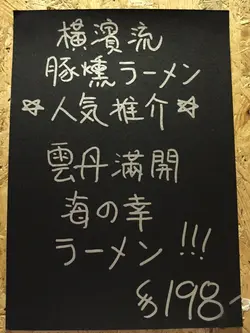 橫濱流
豚燻ラーメン
☆人気推介☆
雲丹滿開
海の幸
ラーメン!!!
$198~